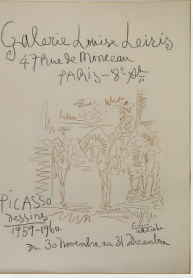 Galerie Louise Leiris
47 Rue de Monceau
PARIS - 8e
PICASSO
Dessins
1959-1960.
Du 30 Novembre au 31 Décembre